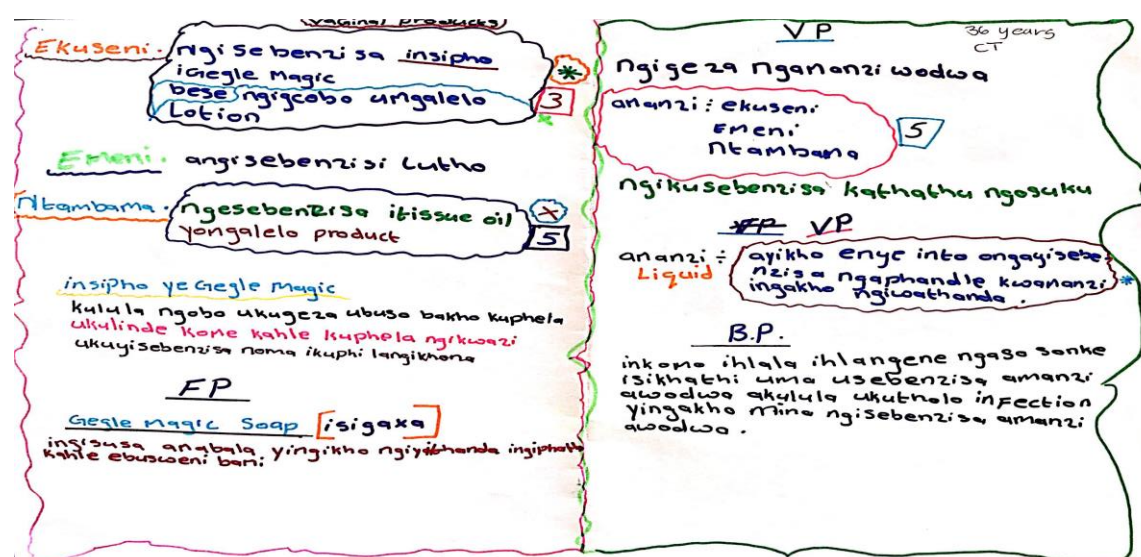 (Vaginal products)
Ekuseni. Ngisebenzisa insipho
iGegle Magic
bese ngigcobo umgalelo
Lotion
* 3
Emeni. angisebenzisi Lutho
Ntambama. ngesebenzisa itissue oil
yongalelo product
x 5
insipho ye Gegle Magic
kulula ngobo ukugeza ubuso bakho kuphela
ukulinde kome kahle kuphela ngikwazi
ukuyisebenzisa noma ikuphi langikhona
FP
Gegle Magic Soap [isigaxa]
ingisusa amabala yingikho ngiyithanda ingiphatha
kahle ebusweni bami.
VP
36 years
CT
ngigeza ngamanzi wodwa
amanzi : ekuseni
Emeni
Ntambama
5
ngikusebenzisa kathathu ngosuku
VP
amanzi ÷ ayikho enye into ongayisebe-
Liquid nzisa ngaphandle kwamanzi
ingakho ngiwathanda.
*
B.P.
inkomo ihlala ihlangene ngaso sonke
isikhathi uma usebenzisa amanzi
awodwa akulula ukuthola infection
yingakho mina ngisebenzisa amanzi
awodwa.